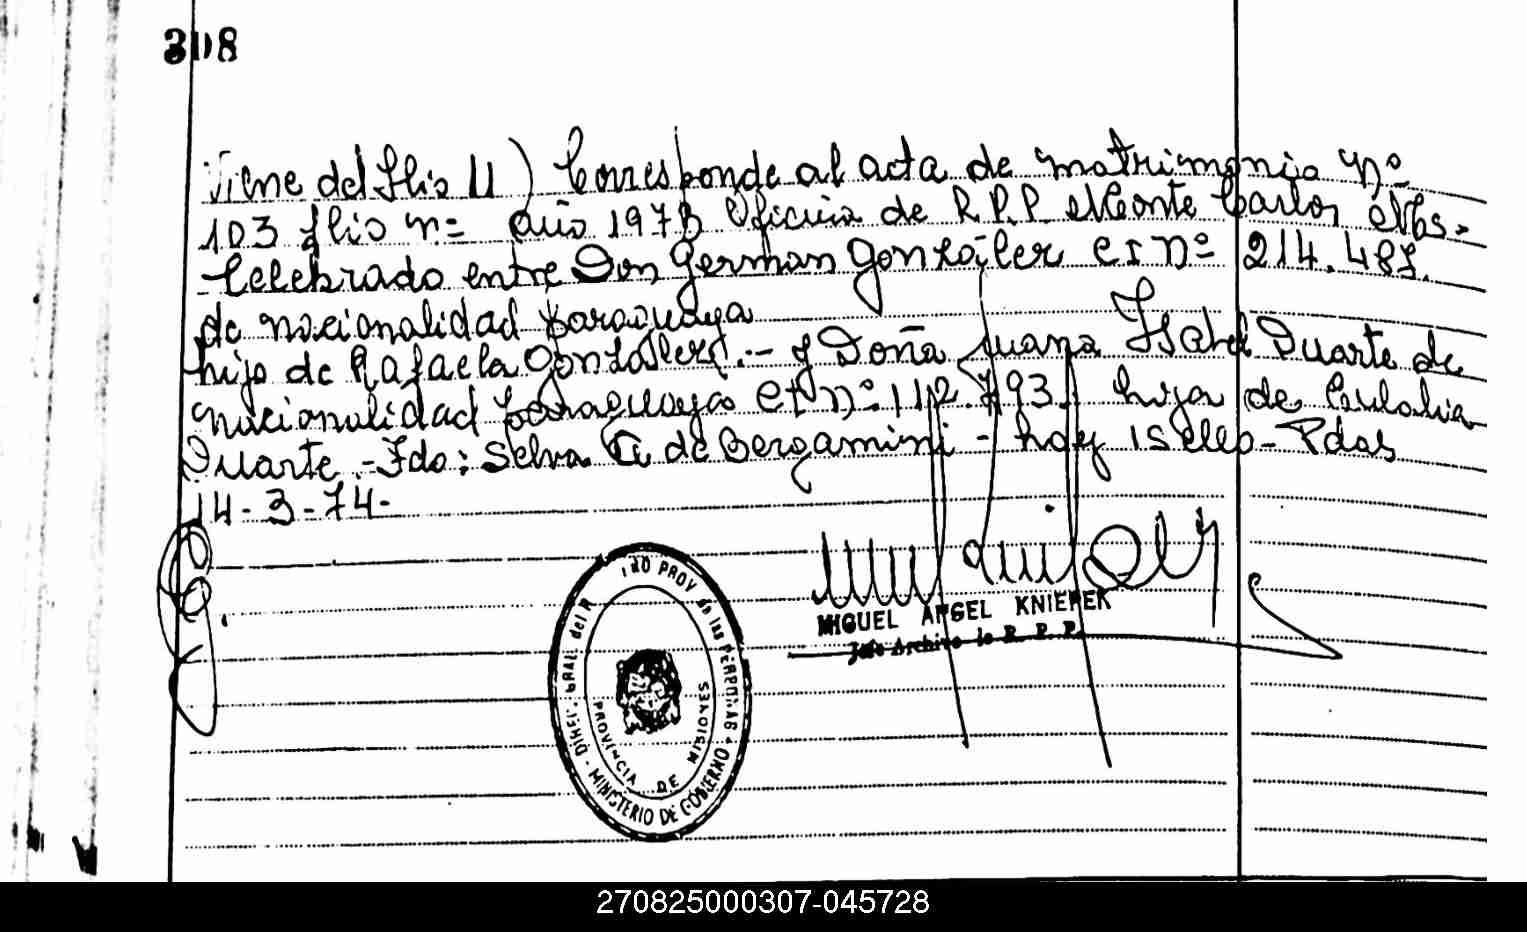 308
Viene del flio 11) Corresponde al acta de matrimonio nº
103 flio n= año 1973 Oficina de R.P.P. Monte Carlo, Ms.-
Celebrado entre Don German Gonzalez CI Nº 214.487.
de nacionalidad paraguaya
hijo de Rafaela Gonzalez.- y Doña Juana Isabel Duarte de
nacionalidad paraguaya CI nº 112.793. hija de Eulalia
Duarte - Fdo: Selva A de Bergamini - hay 1 Sello - Pdas
14-3-74-
MIGUEL ANGEL KNIEPER
Jefe Archivo de R. P. P.
DIREC. GRAL. del R TRO PROV de las PERSONAS - MINISTERIO DE GOBIERNO
PROVINCIA DE MISIONES
270825000307-045728